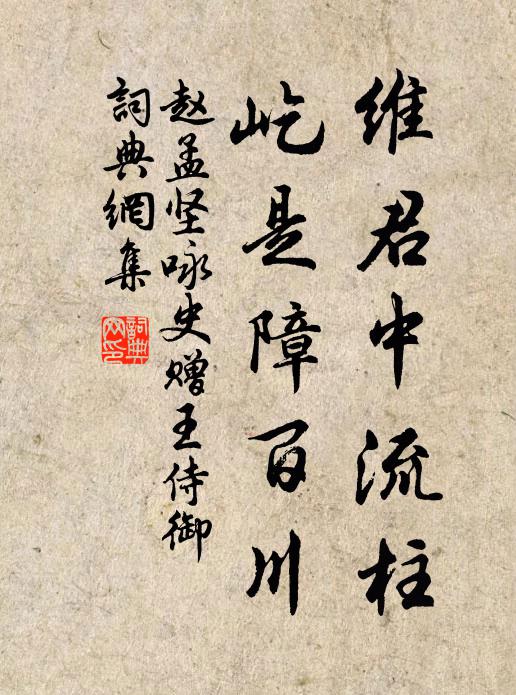 维君中流柱
屹是障百川
赵孟坚咏史赠王侍御
詞典網集
詞典网印